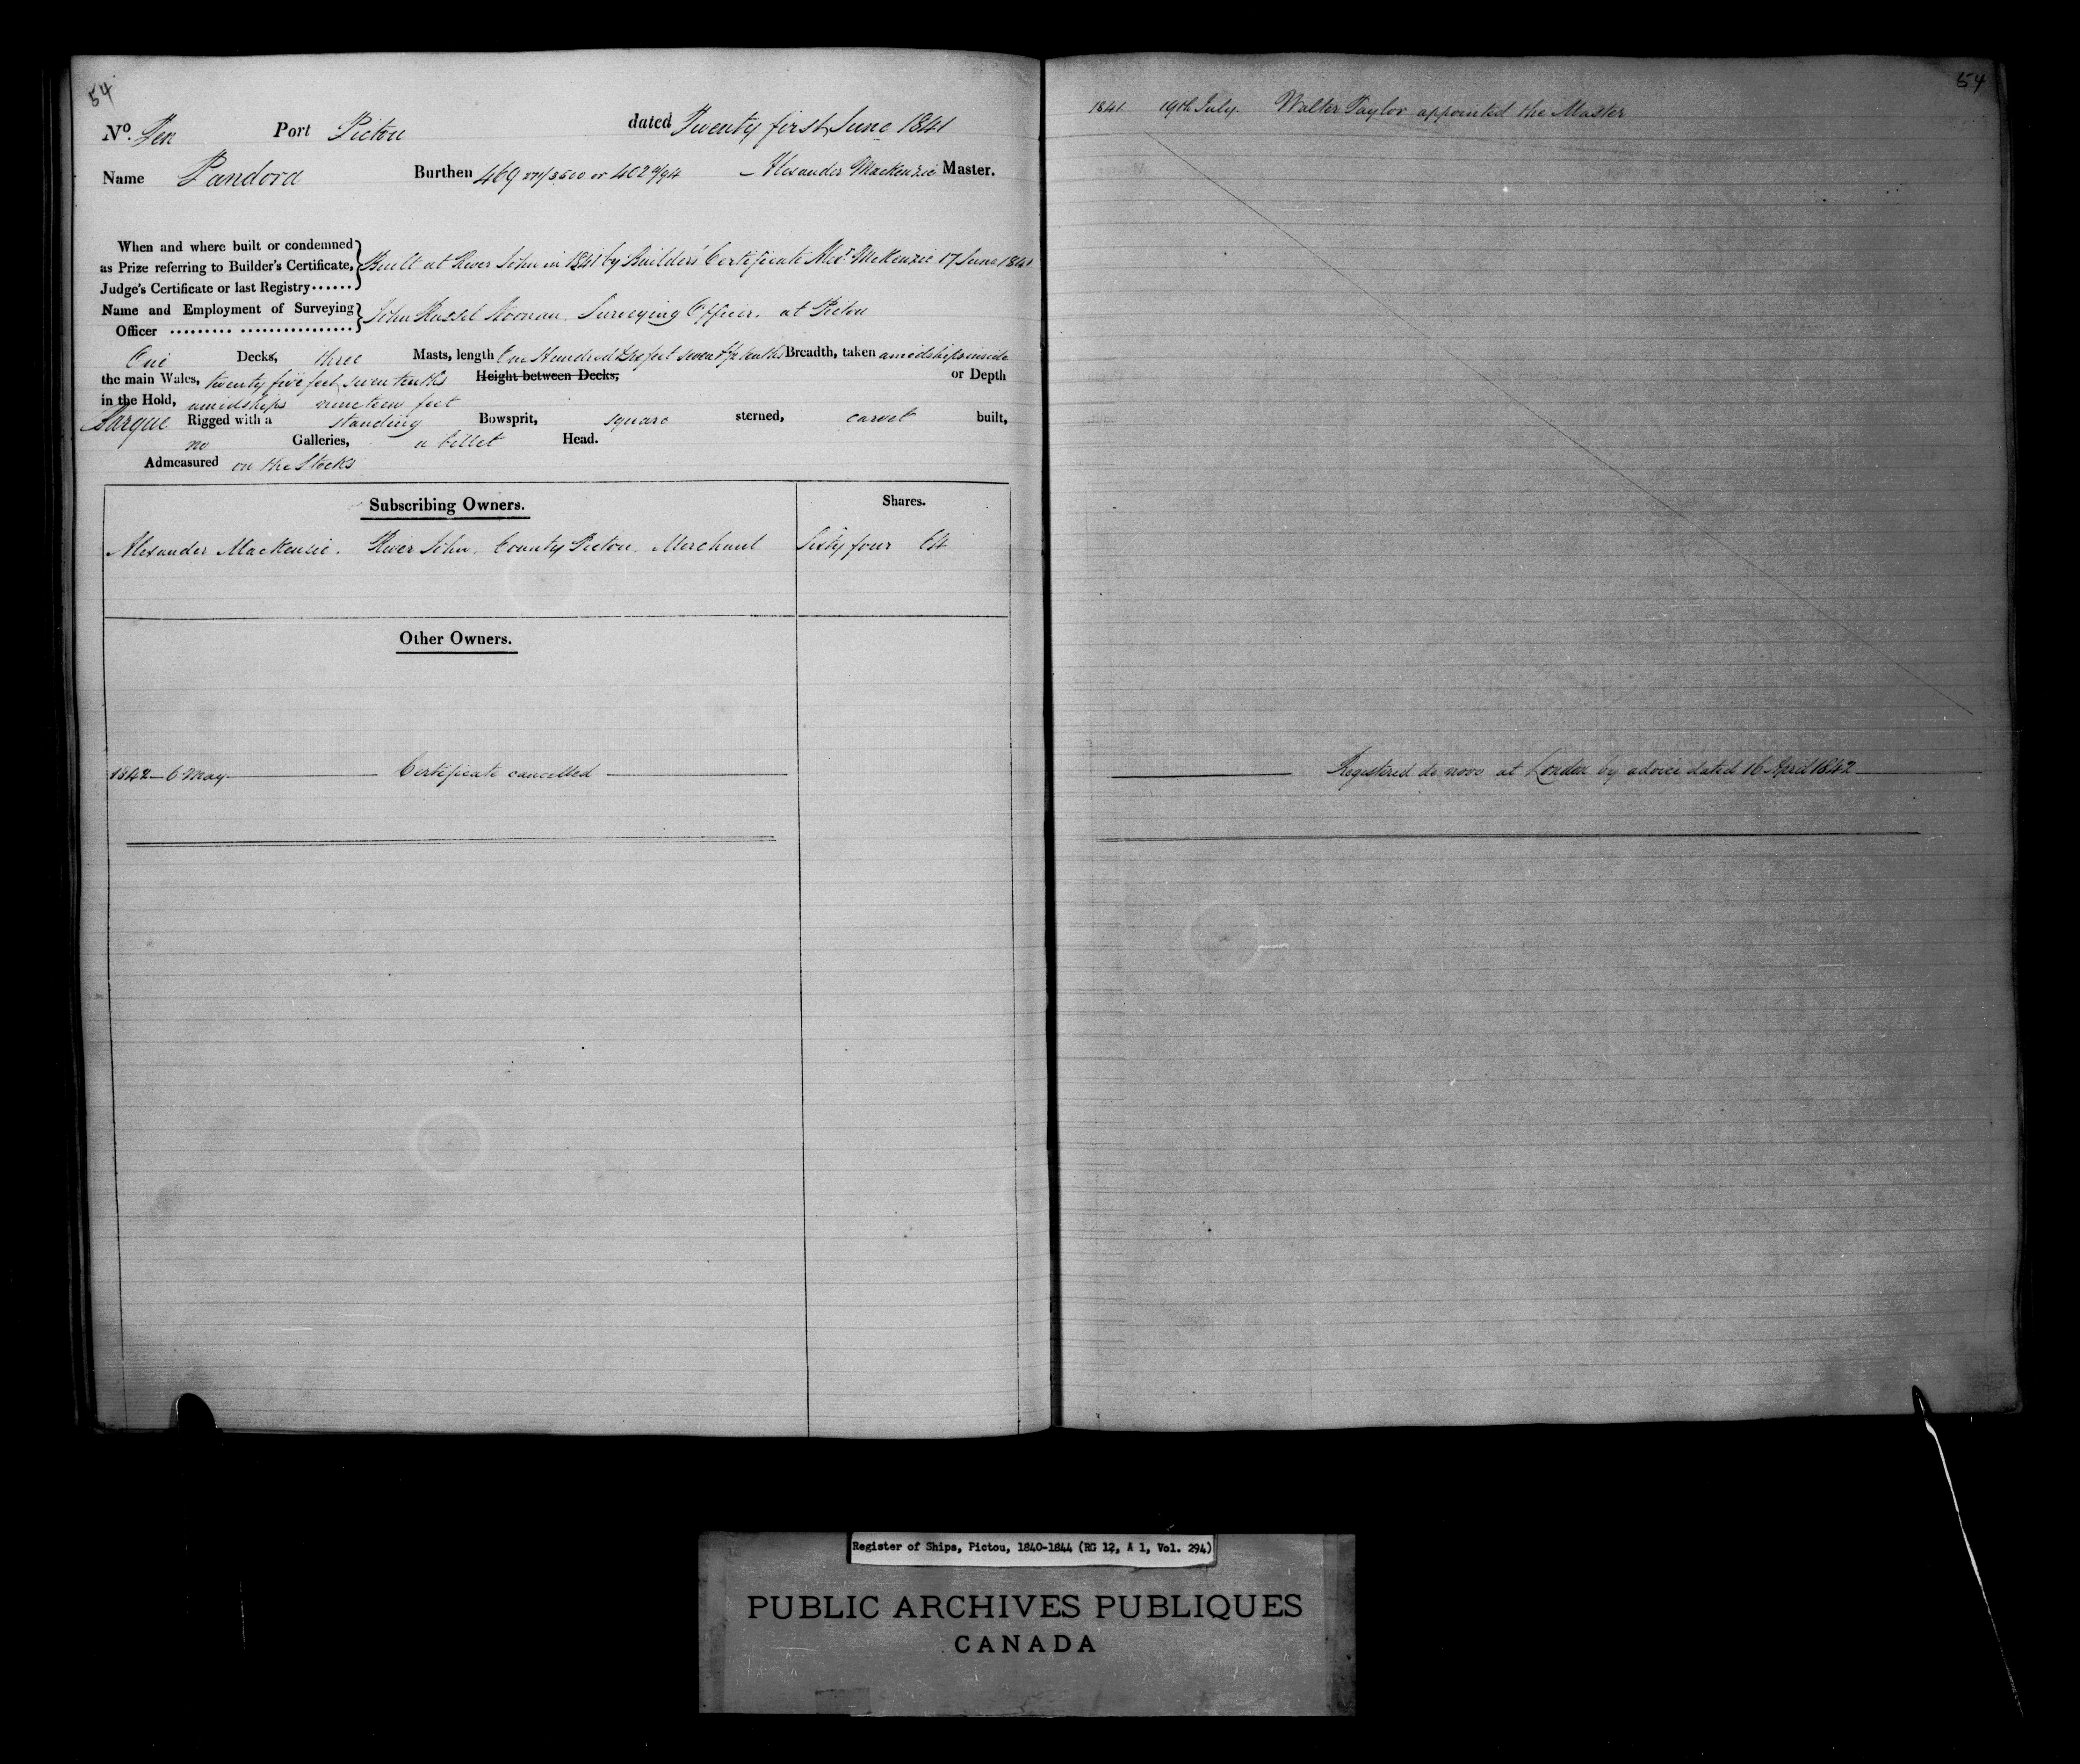 54
Nº Ten Port Pictou dated Twenty first June 1841
Name Pandora Burthen 469 /3500 or 402 /94 Alexander MacKenzie Master.
When and where built or condemned
as Prize referring to Builder's Certificate,
Judge's Certificate or last Registry......
Built at River John in 1841 by Builders Certificate Alexr McKenzie 17 June 1841
Name and Employment of Surveying
Officer
John Russel Noonan. Surveying Officer. at Pictou
One Decks, three Masts, length One Hundred feet seven tenths Breadth, taken amidships inside
the main Wales, twenty five feet seven tenths Height between Decks, or Depth
in the Hold, amidships nineteen feet
Barque Rigged with a standing Bowsprit, square sterned, carvel built,
no Galleries, a billet Head.
Admeasured on the Stocks
Subscribing Owners. Shares.
Alexander MacKenzie. River John. County Pictou. Merchant Sixty four
Other Owners.
1842 6 May Certificate cancelled
54
1841. 19th July. Walter Taylor appointed the Master
Registered de novo at London by advice dated 16 April 1842
Register of Ships, Pictou, 1840-1844 (RG 12, A 1, Vol. 294)
PUBLIC ARCHIVES PUBLIQUES
CANADA